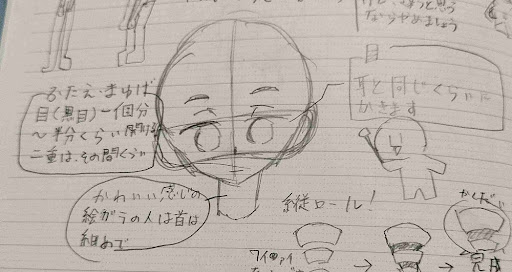 ならやめましょう
目
耳と同じくらいに
かきます
ふたえ・まゆげ
目(黒目)一個分
〜半分くらい開ける
二重は、その間くらい
かわいい感じの
絵がらの人は首は
細めで
縦ロール!
→
→
完成